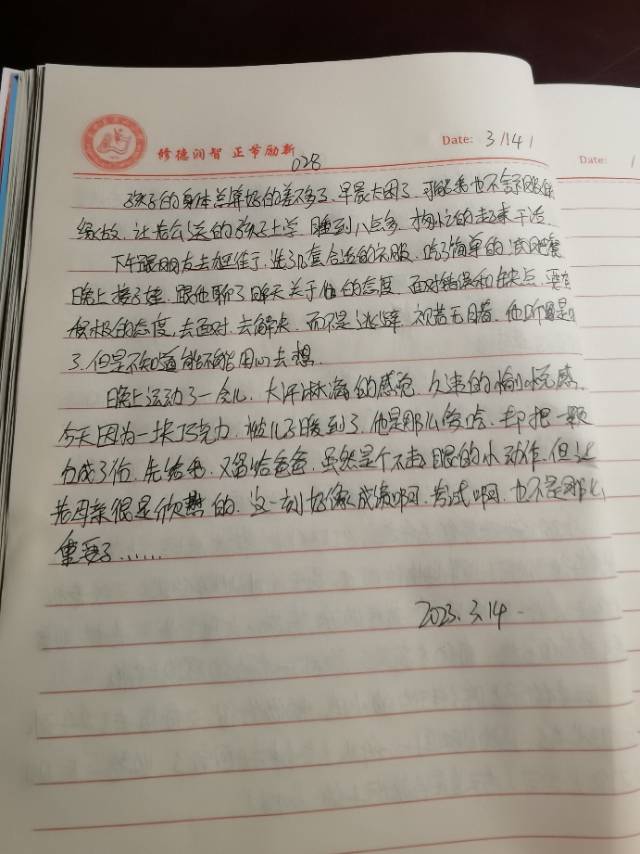 修德润智 正节励新
028
Date: 3/14/
Date: /
孩子的身体总算好的差不多了,早晨太困了,可能我也不舒服的
缘故,让老公送的孩子上学,睡到八点多,抓忙的起来干活.
下午跟朋友去逛佳于,选了几套合适的衣服,吃了简单的
晚上接了娃,跟他聊了聊天关于他的态度,面对错误和缺点,要有
积极的态度,去面对,去解决,而不是逃避,视若无睹.他听是
了.但是不知道能不能用心去想.
晚上运动了一会儿,大汗淋漓的感觉,久违的愉悦感.
今天因为一块巧克力,被儿子暖到了.他是那么爱吃,却把一颗
分成了份,先给我,又留给爸爸,虽然是个不起眼的小动作,但让
老母亲很是欣慰的.这一刻好像成绩啊,考试啊,也不是那么
重要了......
2023.3.14.